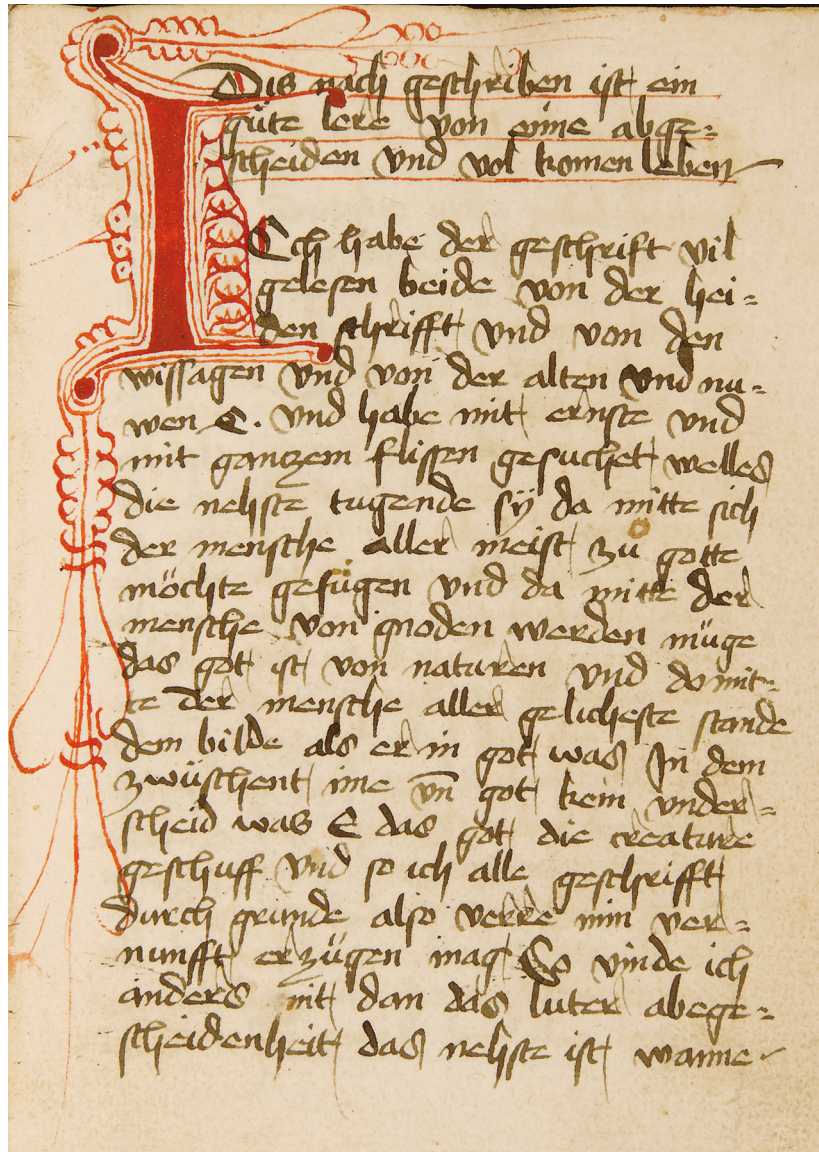 Dis nach geschriben ist ein
gůte lere von eine abge=
scheiden vnd vol komen leben
ICh habe der geschrift vil
gelesen beide von der hei=
den schrifft vnd von den
wissagen vnd von der alten vnd nu=
wen E. vnd habe mit ernste vnd
mit gantzem flissen gesuchet welles
die nehste tugende sÿ da mitte sich
der mensche aller meist zů gotte
möchte gefůgen vnd da mitte der
mensche von gnoden werden müge
das got ist von naturen vnd do mit=
te der mensche aller gelicheste stande
dem bilde als er in got was In dem
zwüschent ime vn̄ got kein vnder=
scheid was E das got die creature
geschuff vnd so ich alle geschrifft
durch grunde also verre min ver=
nunfft erzügen mag So vinde ich
anders nit dan das luter abege=
scheidenheit das nehste ist wanne